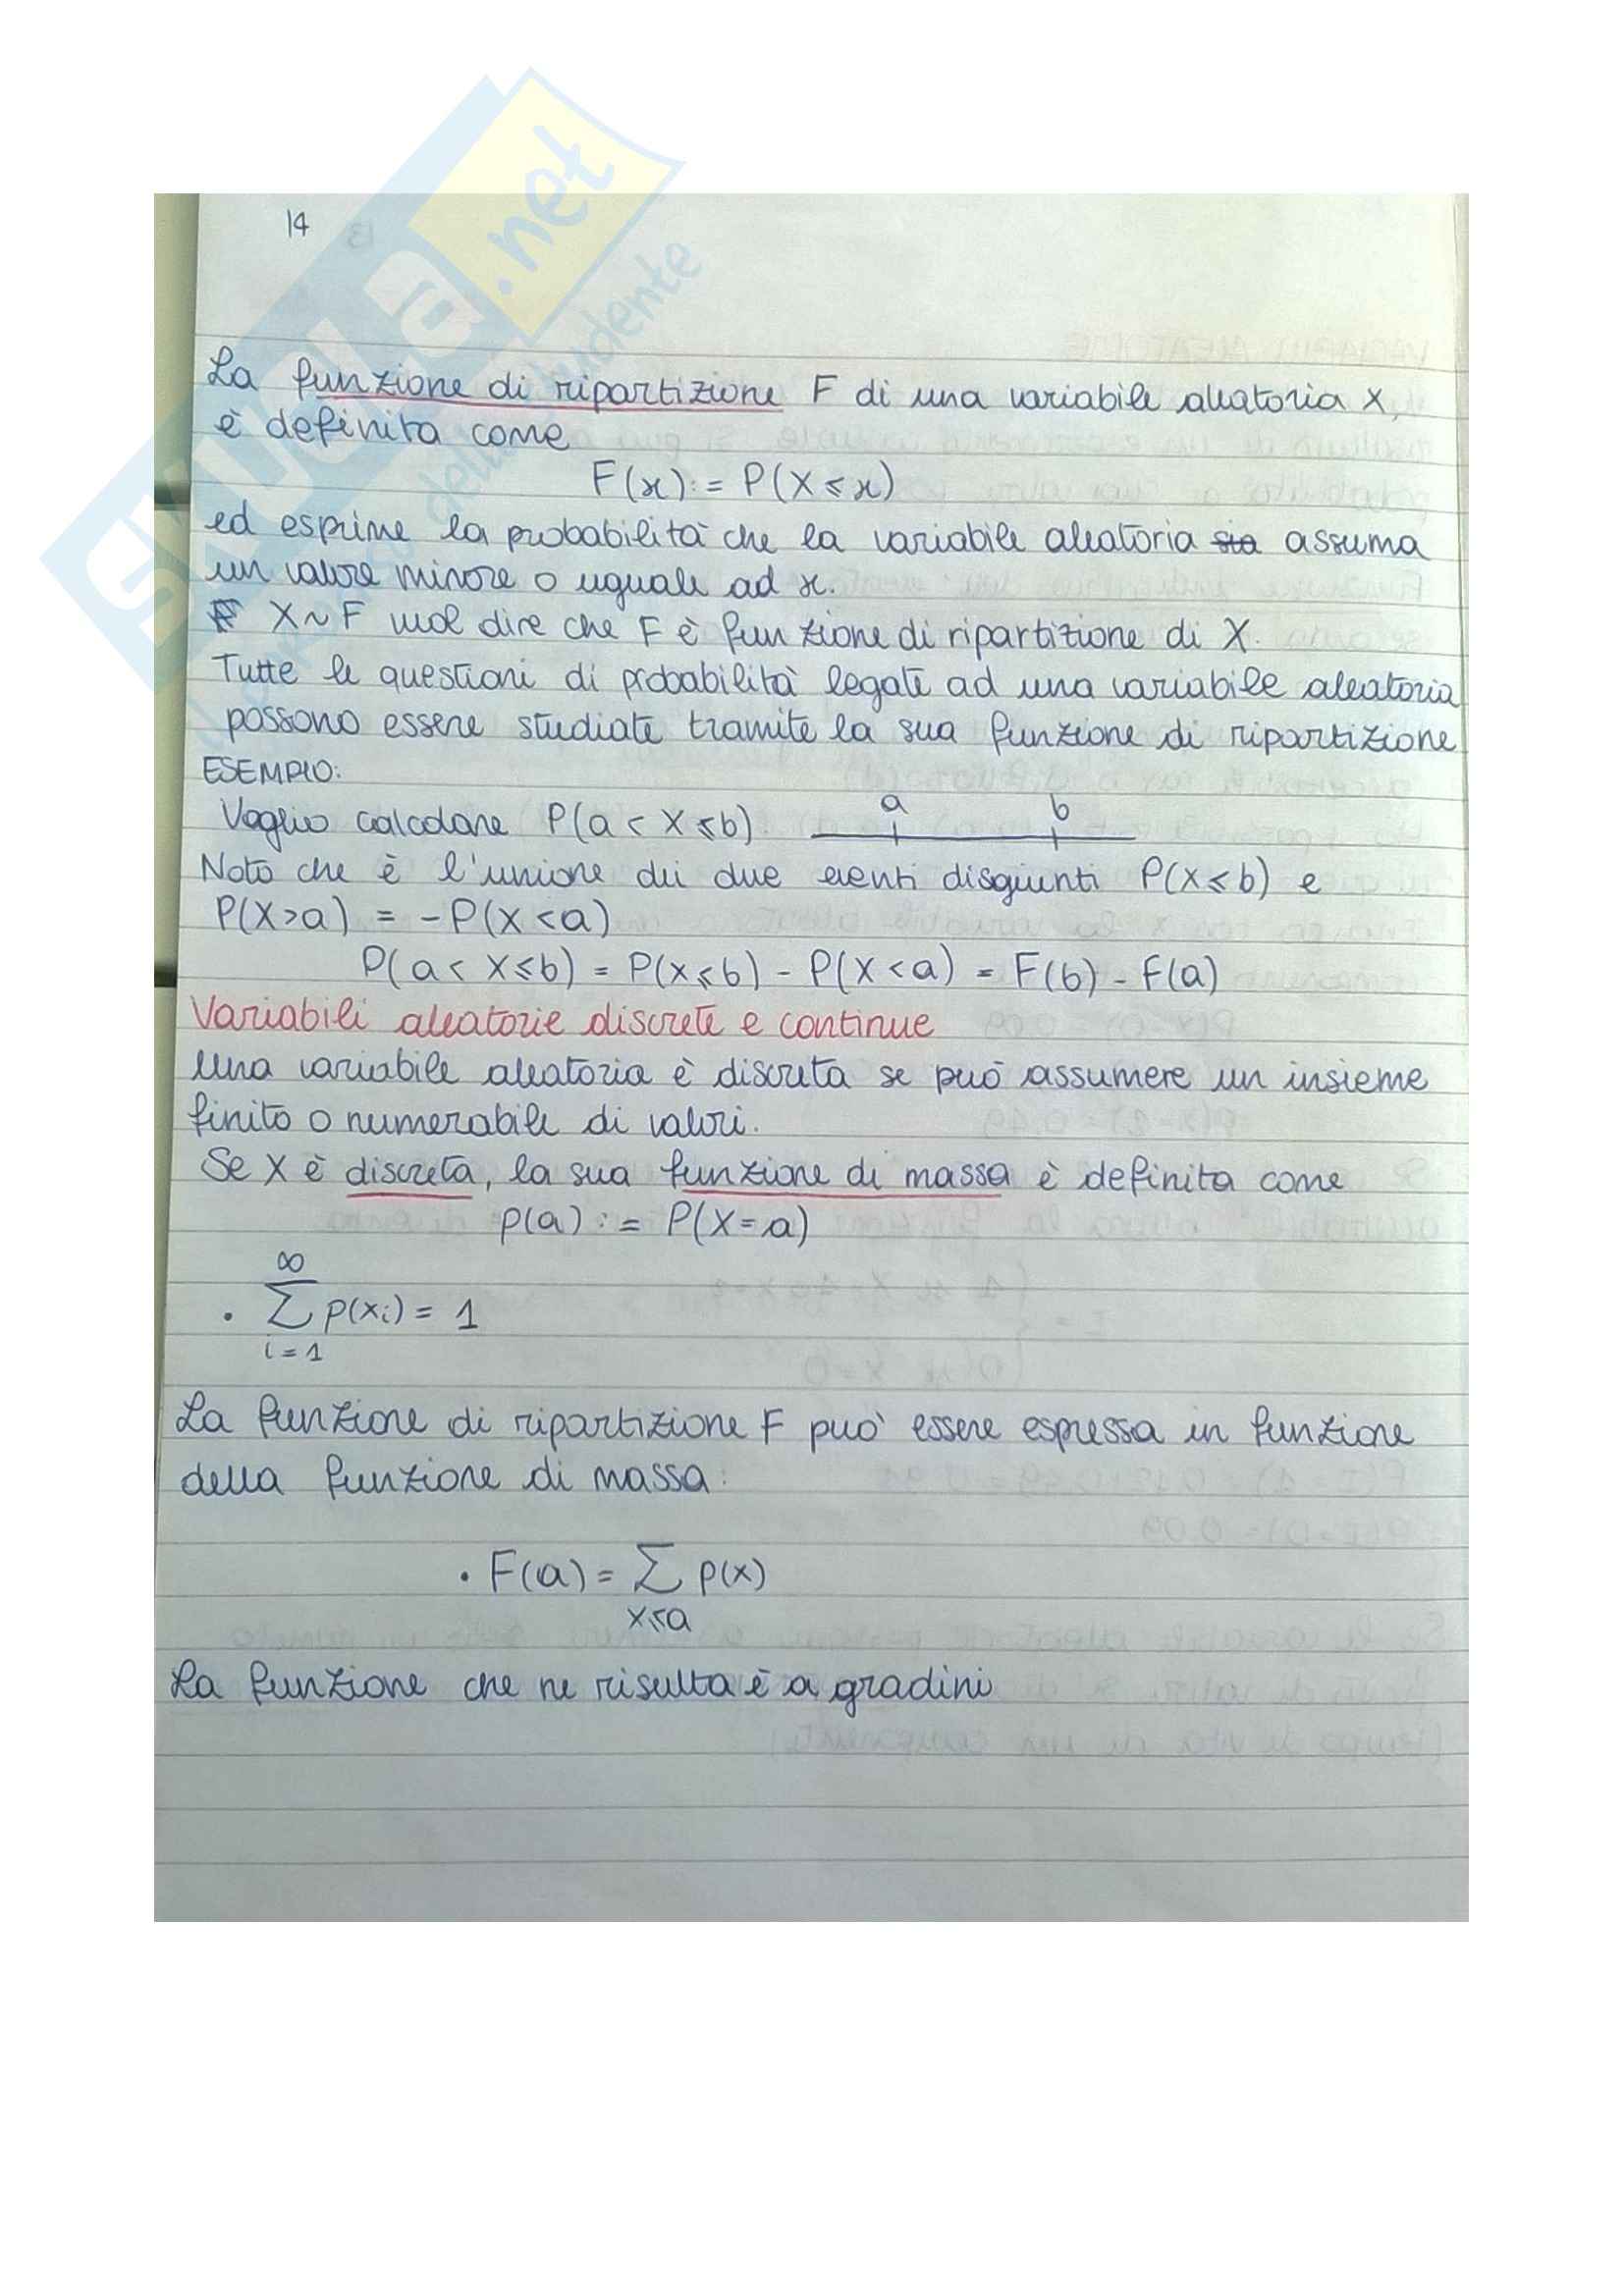 14
La funzione di ripartizione F di una variabile aleatoria X,
è definita come
F(x) := P(X ⩽ x)
ed esprime la probabilità che la variabile aleatoria sia assuma
un valore minore o uguale ad x.
X ~ F vuol dire che F è funzione di ripartizione di X.
Tutte le questioni di probabilità legate ad una variabile aleatoria
possono essere studiate tramite la sua funzione di ripartizione
ESEMPIO:
Voglio calcolare P(a < X ⩽ b) a b
Noto che è l'unione dei due eventi disgiunti P(X ⩽ b) e
P(X > a) = - P(X < a)
P(a < X ⩽ b) = P(X ⩽ b) - P(X < a) = F(b) - F(a)
Variabili aleatorie discrete e continue
Una variabile aleatoria è discreta se può assumere un insieme
finito o numerabile di valori.
Se X è discreta, la sua funzione di massa è definita come
p(a) := P(X = a)
∞
• ∑ p(xi) = 1
i = 1
La funzione di ripartizione F può essere espressa in funzione
della funzione di massa:
• F(a) = ∑ p(x)
x ⩽ a
La funzione che ne risulta è a gradini
SKUOLA.net